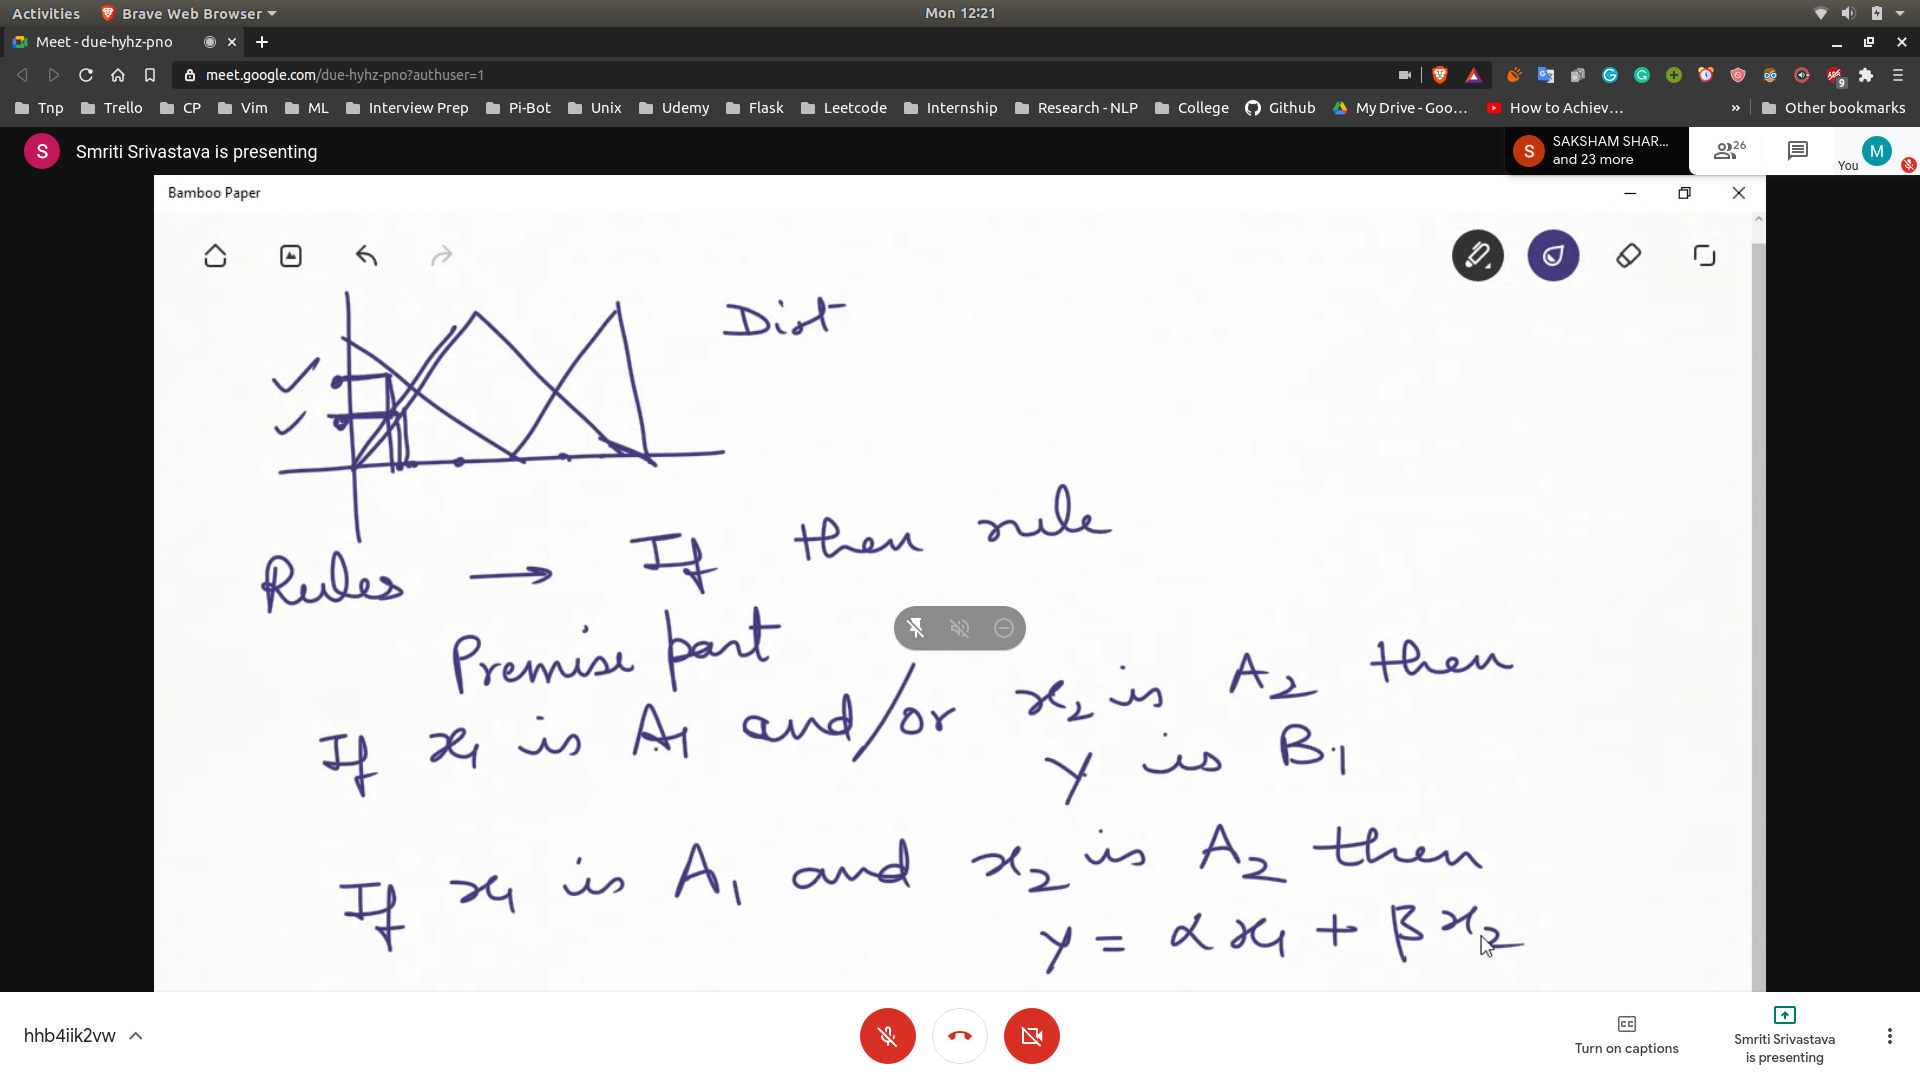 Activities Brave Web Browser Mon 12:21
Meet - due-hyhz-pno
meet.google.com/due-hyhz-pno?authuser=1 9
Tnp Trello CP Vim ML Interview Prep Pi-Bot Unix Udemy Flask Leetcode Internship Research - NLP College Github My Drive - Goo... How to Achiev... » Other bookmarks
S Smriti Srivastava is presenting
S SAKSHAM SHAR...
and 23 more
26
You M
Bamboo Paper
Dist
Rules → If then rule
Premise part
If x1 is A1 and/or x2 is A2 then
Y is B1
If x1 is A1 and x2 is A2 then
y = αx1 + βx2
hhb4iik2vw
Turn on captions
Smriti Srivastava
is presenting